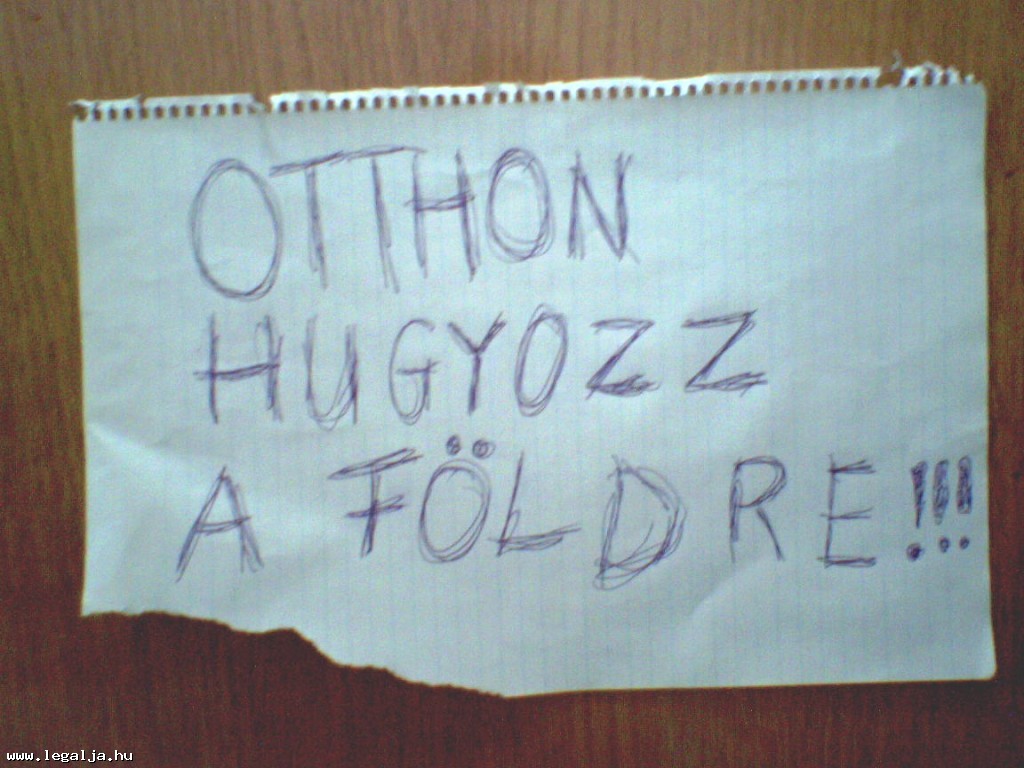 OTTHON
HUGYOZZ
A FÖLDRE!!!
www.legalja.hu